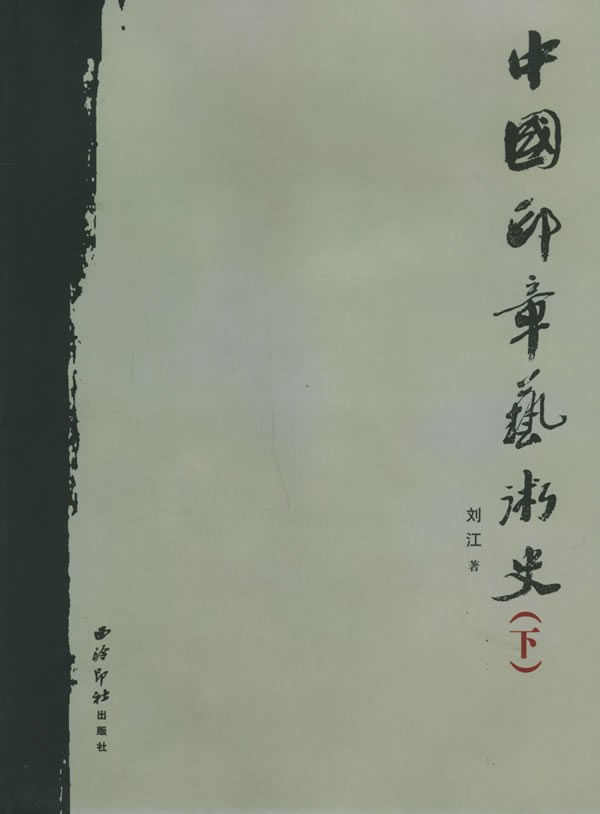 中國印章藝術史(下)
刘江 著
西泠印社出版社